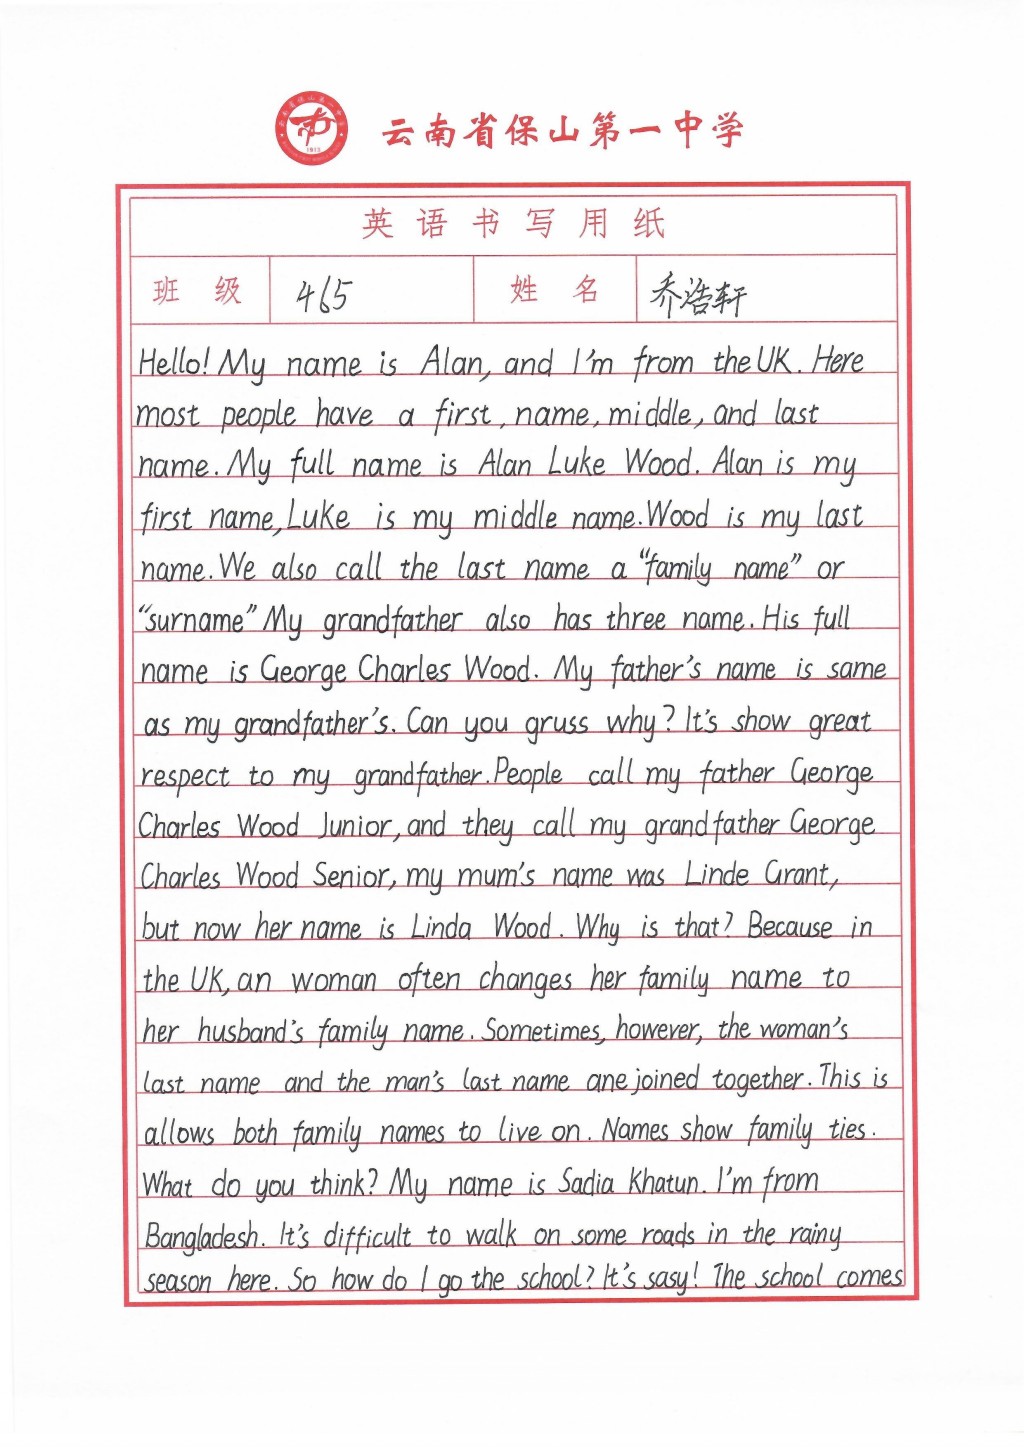 云南省保山第一中学
1912
英语书写用纸
班级 465 姓名 乔浩轩
Hello! My name is Alan, and I'm from the UK. Here
most people have a first, name, middle, and last
name. My full name is Alan Luke Wood. Alan is my
first name, Luke is my middle name. Wood is my last
name. We also call the last name a "family name" or
"surname" My grandfather also has three name. His full
name is George Charles Wood. My father's name is same
as my grandfather's. Can you gruss why? It's show great
respect to my grandfather. People call my father George
Charles Wood Junior, and they call my grandfather George
Charles Wood Senior, my mum's name was Linde Grant,
but now her name is Linda Wood. Why is that? Because in
the UK, an woman often changes her family name to
her husband's family name. Sometimes, however, the woman's
last name and the man's last name ane joined together. This is
allows both family names to live on. Names show family ties.
What do you think? My name is Sadia Khatun. I'm from
Bangladesh. It's difficult to walk on some roads in the rainy
season here. So how do I go the school? It's sasy! The school comes